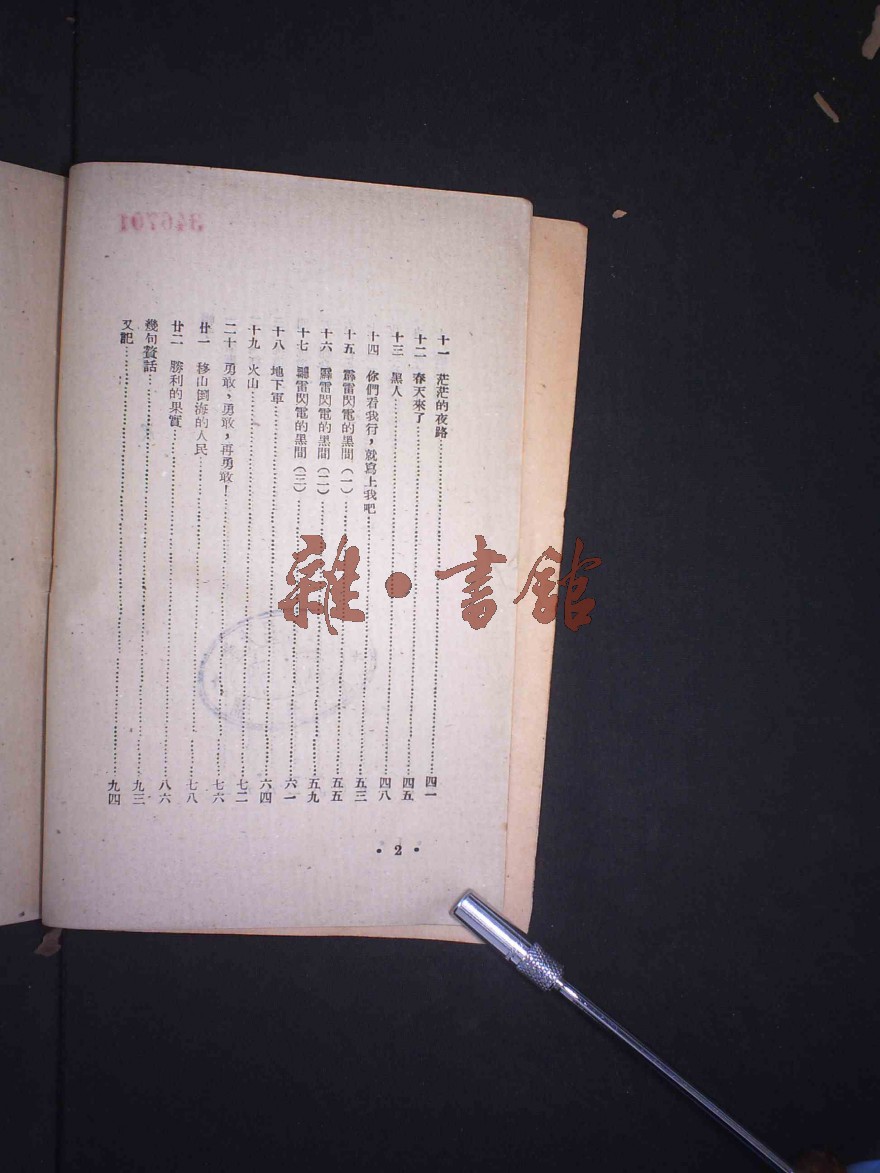 十一 茫茫的夜路……四一
十二 春天來了……四五
十三 黑人……四八
十四 你們看我行，就寫上我吧……五三
十五 霹雷閃電的黑間（一）……五五
十六 霹雷閃電的黑間（二）……五九
十七 霹雷閃電的黑間（三）……六一
十八 地下軍……六四
十九 火山……七二
二十 勇敢，勇敢，再勇敢！……七六
廿一 移山倒海的人民……七八
廿二 勝利的果實……八六
幾句贅話……九三
又記……九四
• 2 •
346701
雜•書館